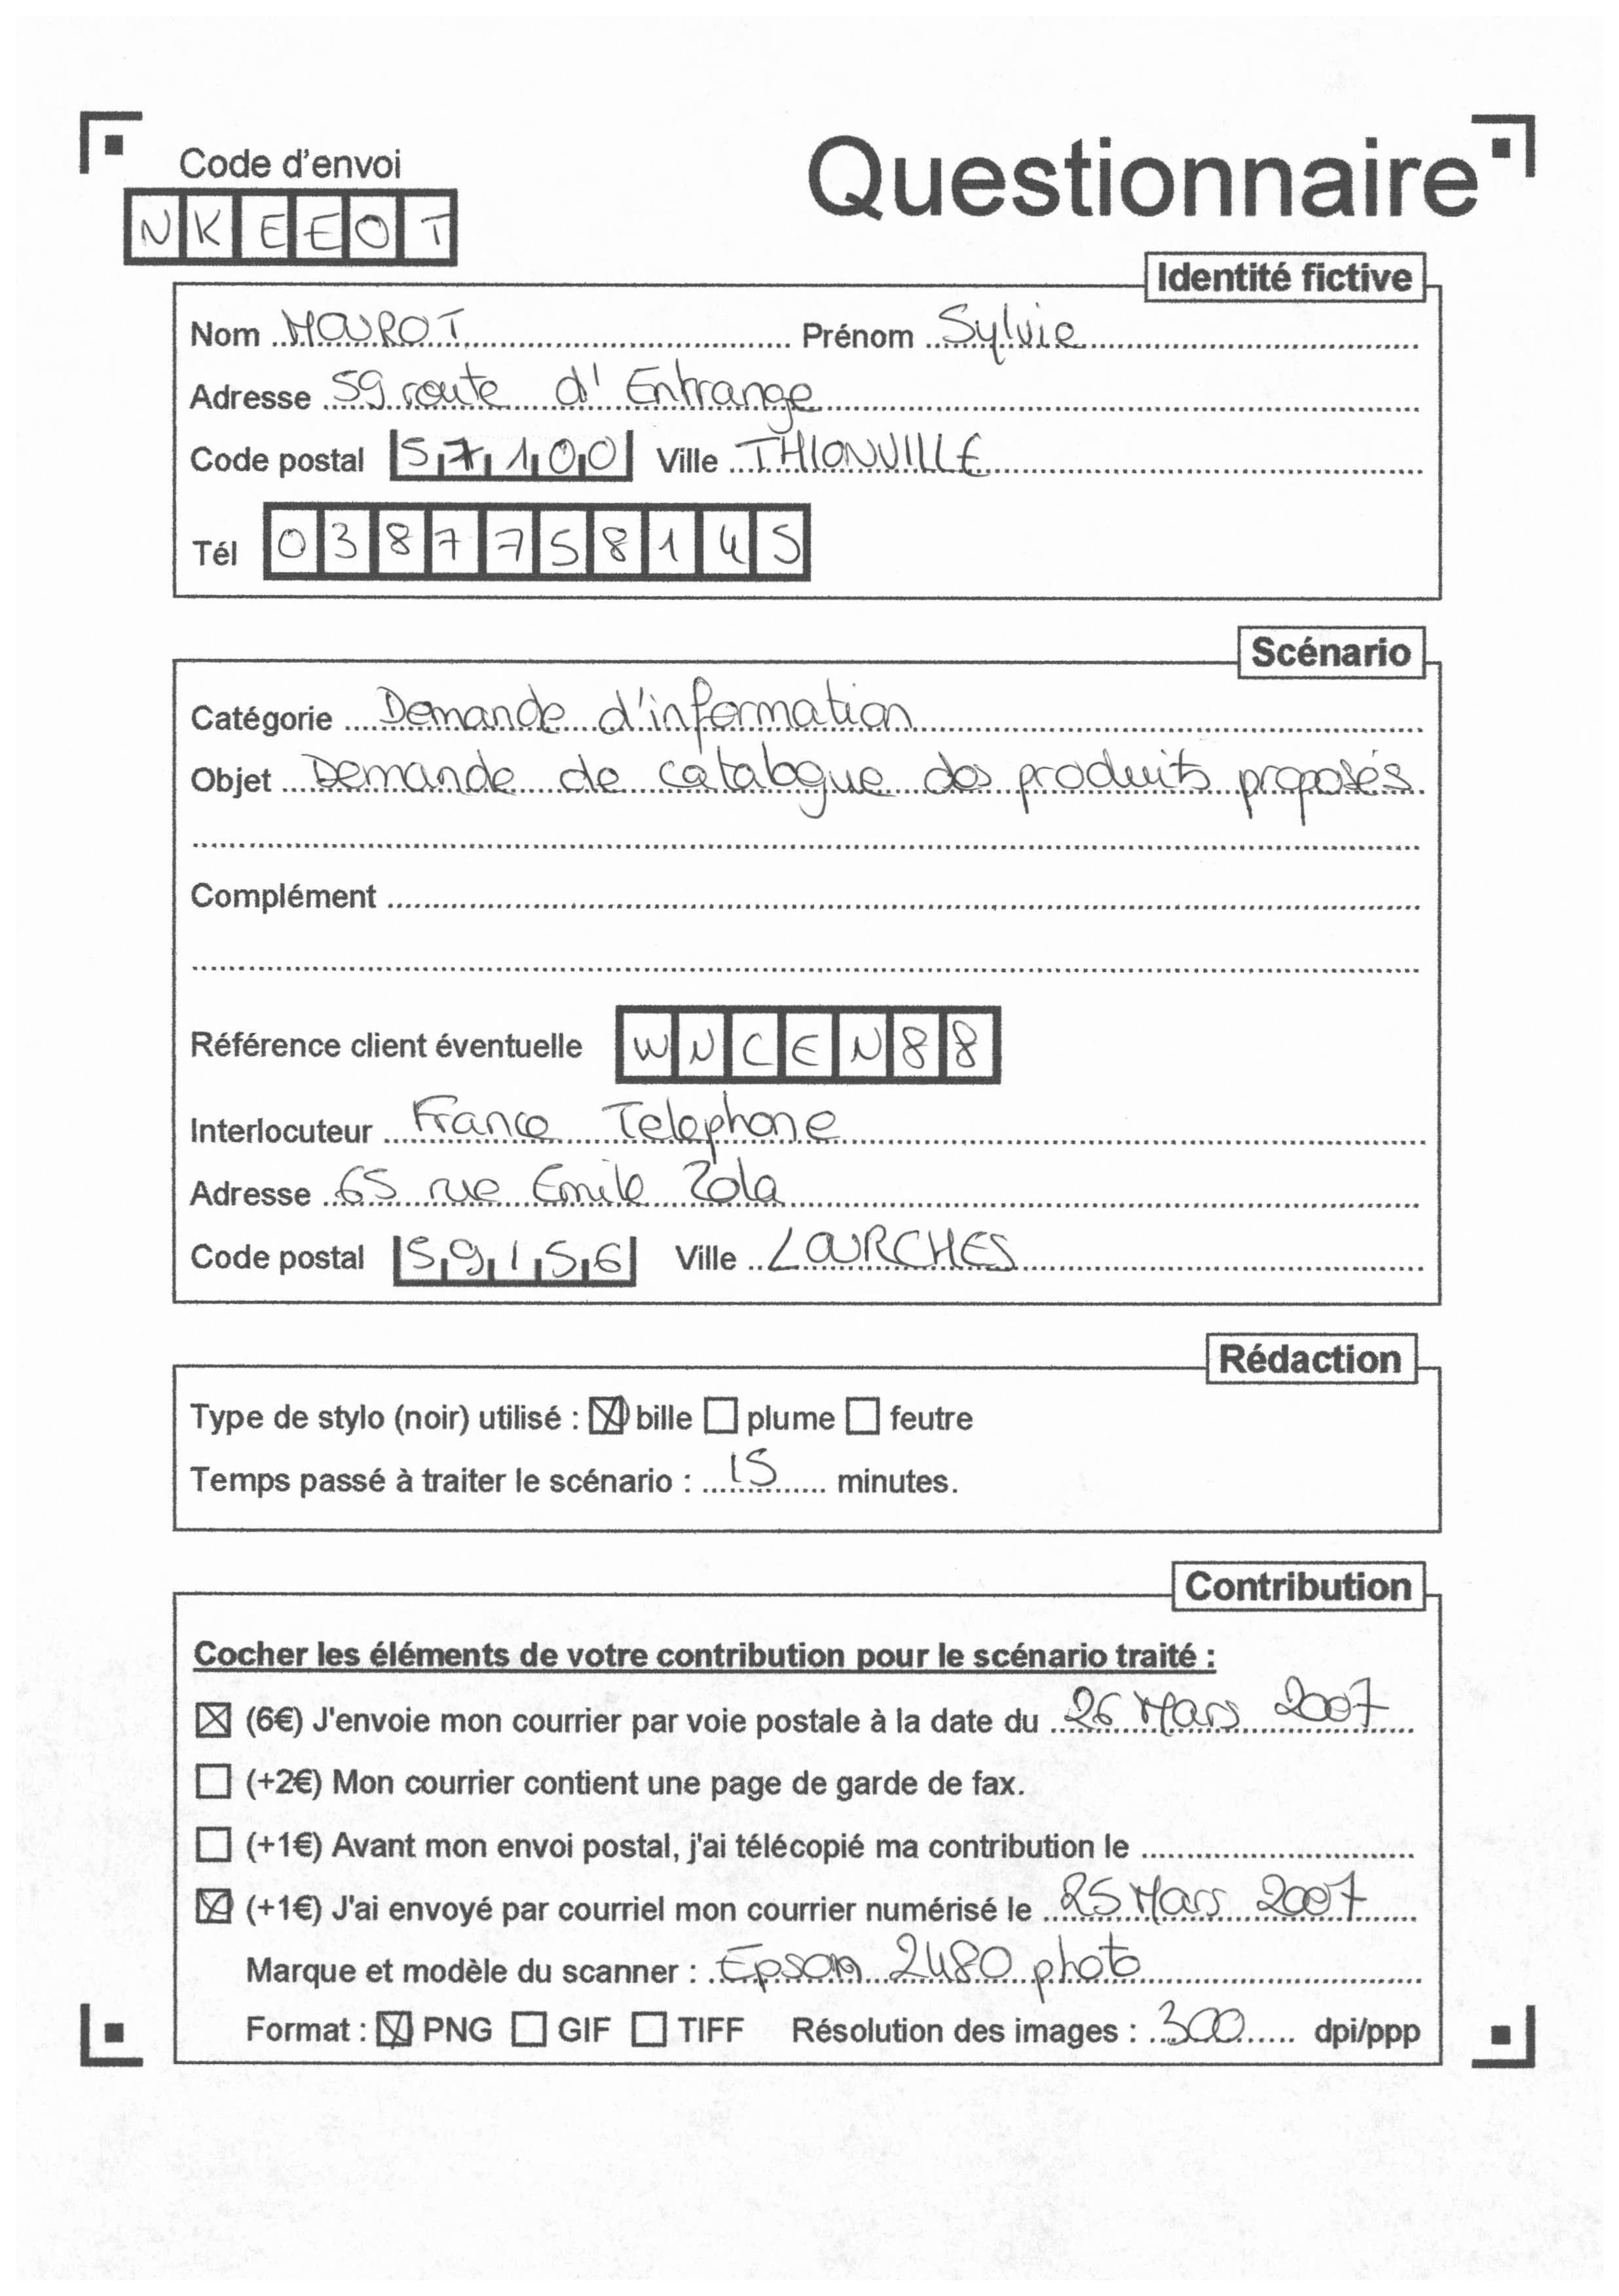 Code d'envoi
Questionnaire
NKEEOT
Identité fictive
Nom MOUROT Prénom Sylvie
Adresse 59 route d'Entrange
Code postal 57100 Ville THIONVILLE
Tél 0387758145
Scénario
Catégorie Demande d'information
Objet Demande de catalogue des produits proposés
Complément
Référence client éventuelle WNCEN88
Interlocuteur France Telephone
Adresse 65 rue Emile Zola
Code postal 59156 Ville LOURCHES
Rédaction
Type de stylo (noir) utilisé : ☒ bille ☐ plume ☐ feutre
Temps passé à traiter le scénario : 15 minutes.
Contribution
Cocher les éléments de votre contribution pour le scénario traité :
☒ (6€) J'envoie mon courrier par voie postale à la date du 26 Mars 2007
☐ (+2€) Mon courrier contient une page de garde de fax.
☐ (+1€) Avant mon envoi postal, j'ai télécopié ma contribution le
☒ (+1€) J'ai envoyé par courriel mon courrier numérisé le 25 Mars 2007
Marque et modèle du scanner : Epson 2480 photo
Format : ☒ PNG ☐ GIF ☐ TIFF Résolution des images : 300 dpi/ppp